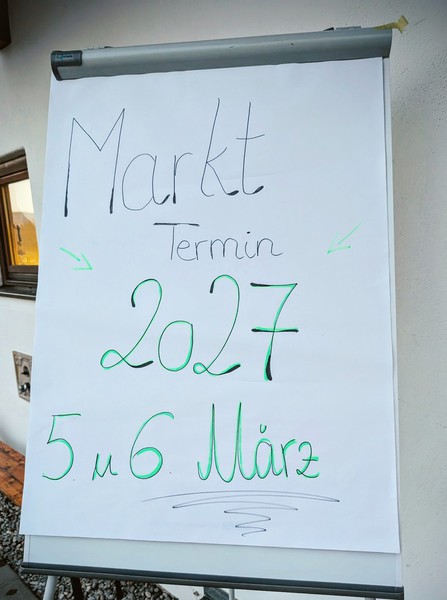 Markt
Termin
2027
5 u 6. März